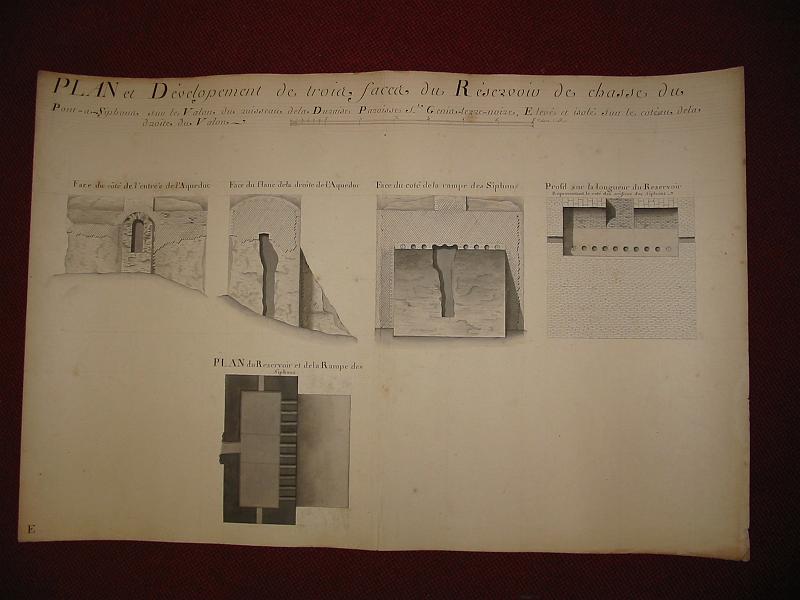 PLAN et Dévelopement de trois, faces du Réservoir de chasse du
Pont-a-Siphons sur le Valon du ruisseau de la Duraise Paroisse St. Genis-terre-noire, Elevés et isolé sur le coteau de la
droite du Valon
Face du côté de l'entrée de l'Aqueduc
Face du flanc de la droite de l'Aqueduc
Face du coté de la rampe des Siphons
Profil sur la longueur du Reservoir
Representant le coté des orifices des Siphons
PLAN du Reservoir et de la Rampe des
Siphons
E